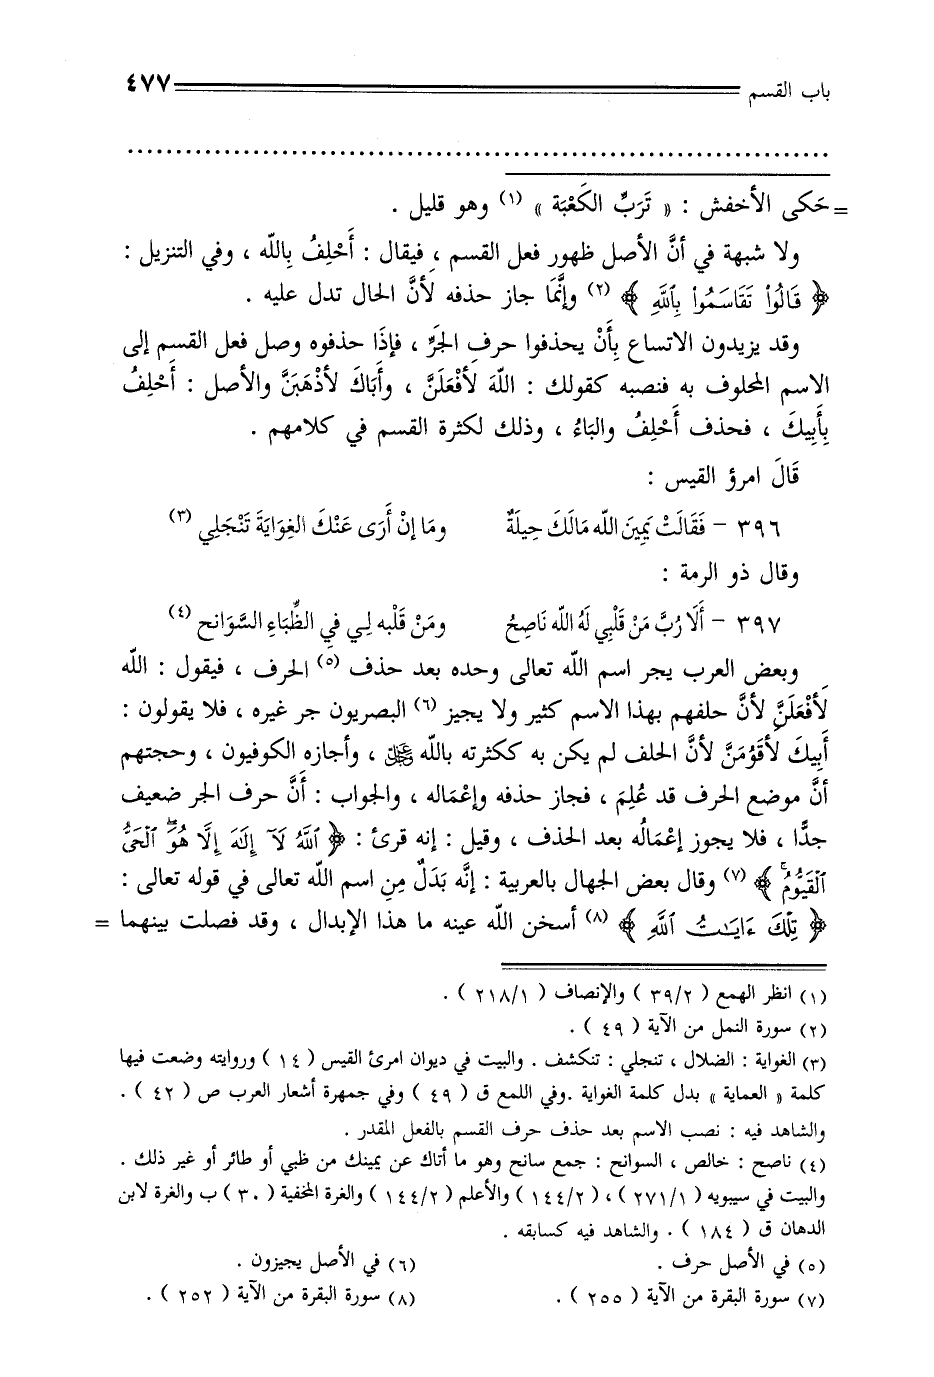 باب القسم ٤٧٧
= حَكى الأخفش : « تَرَبِّ الكَعْبَة » (١) وهو قليل .
ولا شبهة في أنَّ الأصل ظهور فعل القسم ، فيقال : أَحْلِفُ بِاللّه ، وفي التنزيل :
﴿ قَالُواْ تَقَاسَمُواْ بِٱللَّهِ ﴾ (٢) وإنَّمَا جاز حذفه لأنَّ الحال تدل عليه .
وقد يزيدون الاتساع بِأَنْ يحذفوا حرف الجَرِّ ، فَإذَا حذفوه وصل فعل القسم إلى
الاسم المحلوف به فنصبه كقولك : اللّهَ لأفْعَلَنَّ ، وأَبَاكَ لأذْهَبَنَّ والأصل : أَحْلِفُ
بِأَبِيكَ ، فحذف أَحْلِفُ والبَاءُ ، وذلك لكثرة القسم في كلامهم .
قَالَ امرؤ القيس :
٣٩٦ – فَقَالَتْ يَمِينَ اللّه مَالَكَ حِيلَةٌ ومَا إنْ أَرَى عَنْكَ الغِوَايَةَ تَنْجَلِي (٣)
وقال ذو الرمة :
٣٩٧ – أَلَا رُبَّ مَنْ قَلْبِي لَهُ اللّه نَاصِحُ ومَنْ قَلْبه لِي فِي الظِّبَاءِ السَّوَانح (٤)
وبعض العرب يجر اسم اللّه تعالى وحده بعد حذف (٥) الحرف ، فيقول : اللّه
لَأفْعَلَنَّ لأنَّ حلفهم بهذا الاسم كثير ولا يجيز (٦) البصريون جر غيره ، فلا يقولون :
أَبِيكَ لأقَوُمَنَّ لأنَّ الحلف لم يكن به ككثرته باللّه ﷻ ، وأجازه الكوفيون ، وحجتهم
أنَّ موضع الحرف قد عُلِمَ ، فجاز حذفه وإعْمَاله ، والجواب : أَنَّ حرف الجر ضعيف
جدًّا ، فلا يجوز إعْمَالُه بعد الحذف ، وقيل : إنه قرئ : ﴿ ٱللَّهُ لَآ إِلَٰهَ إِلَّا هُوَۖ ٱلۡحَيُّ
ٱلۡقَيُّومُۚ ﴾ (٧) وقال بعض الجهال بالعربية : إنَّه بَدَلٌ مِن اسم اللّه تعالى في قوله تعالى :
﴿ تِلۡكَ ءَايَٰتُ ٱللَّهِ ﴾ (٨) أسخن اللّه عينه ما هذا الإبدال ، وقد فصلت بينهما =
(١) انظر الهمع ( ٣٩/٢ ) والإنصاف ( ٢١٨/١ ) .
(٢) سورة النمل من الآية ( ٤٩ ) .
(٣) الغواية : الضلال ، تنجلي : تنكشف . والبيت في ديوان امرئ القيس ( ١٤ ) وروايته وضعت فيها
كلمة « العماية » بدل كلمة الغواية .وفي اللمع ق ( ٤٩ ) وفي جمهرة أشعار العرب ص ( ٤٢ ) .
والشاهد فيه : نصب الاسم بعد حذف حرف القسم بالفعل المقدر .
(٤) ناصح : خالص ، السوانح : جمع سانح وهو ما أتاك عن يمينك من ظبي أو طائر أو غير ذلك .
والبيت في سيبويه ( ٢٧١/١ ) ، ( ١٤٤/٢ ) والأعلم ( ١٤٤/٢ ) والغرة المخفية ( ٣٠ ) ب والغرة لابن
الدهان ق ( ١٨٤ ) . والشاهد فيه كسابقه .
(٥) في الأصل حرف . (٦) في الأصل يجيزون .
(٧) سورة البقرة من الآية ( ٢٥٥ ) . (٨) سورة البقرة من الآية ( ٢٥٢ ) .